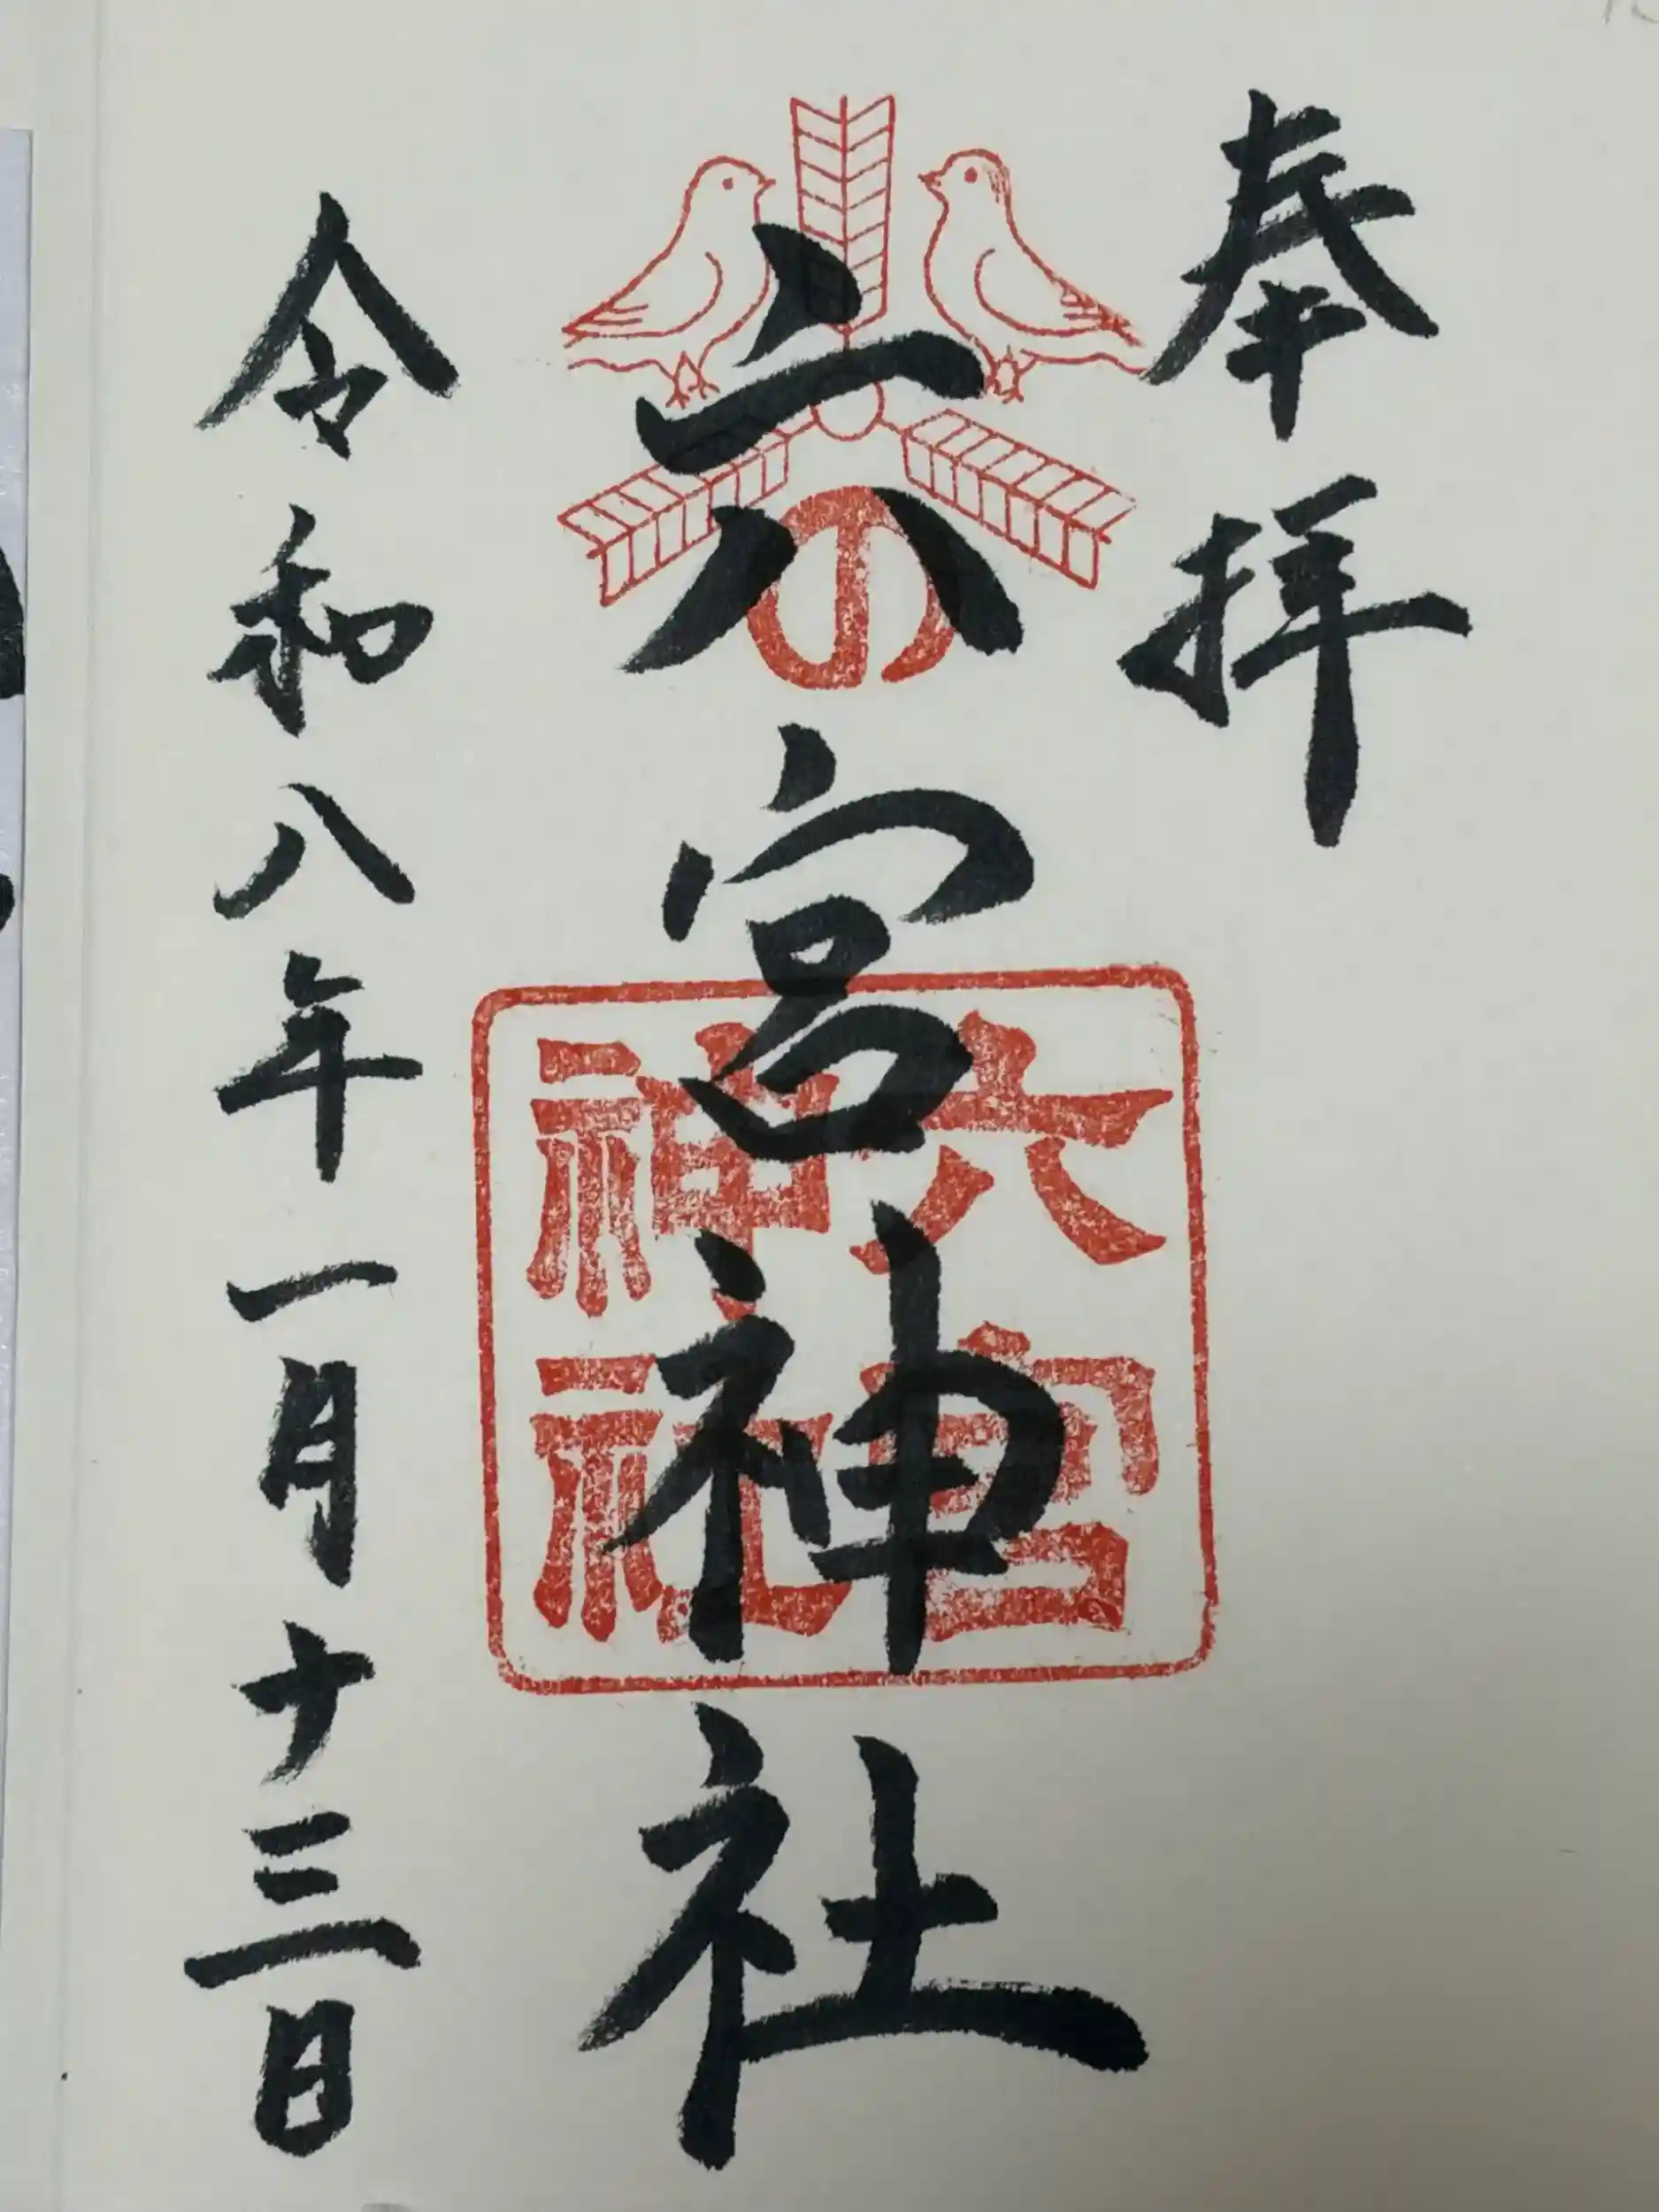 奉拝
六宮神社
の
六宮
神社
令和八年一月十三日